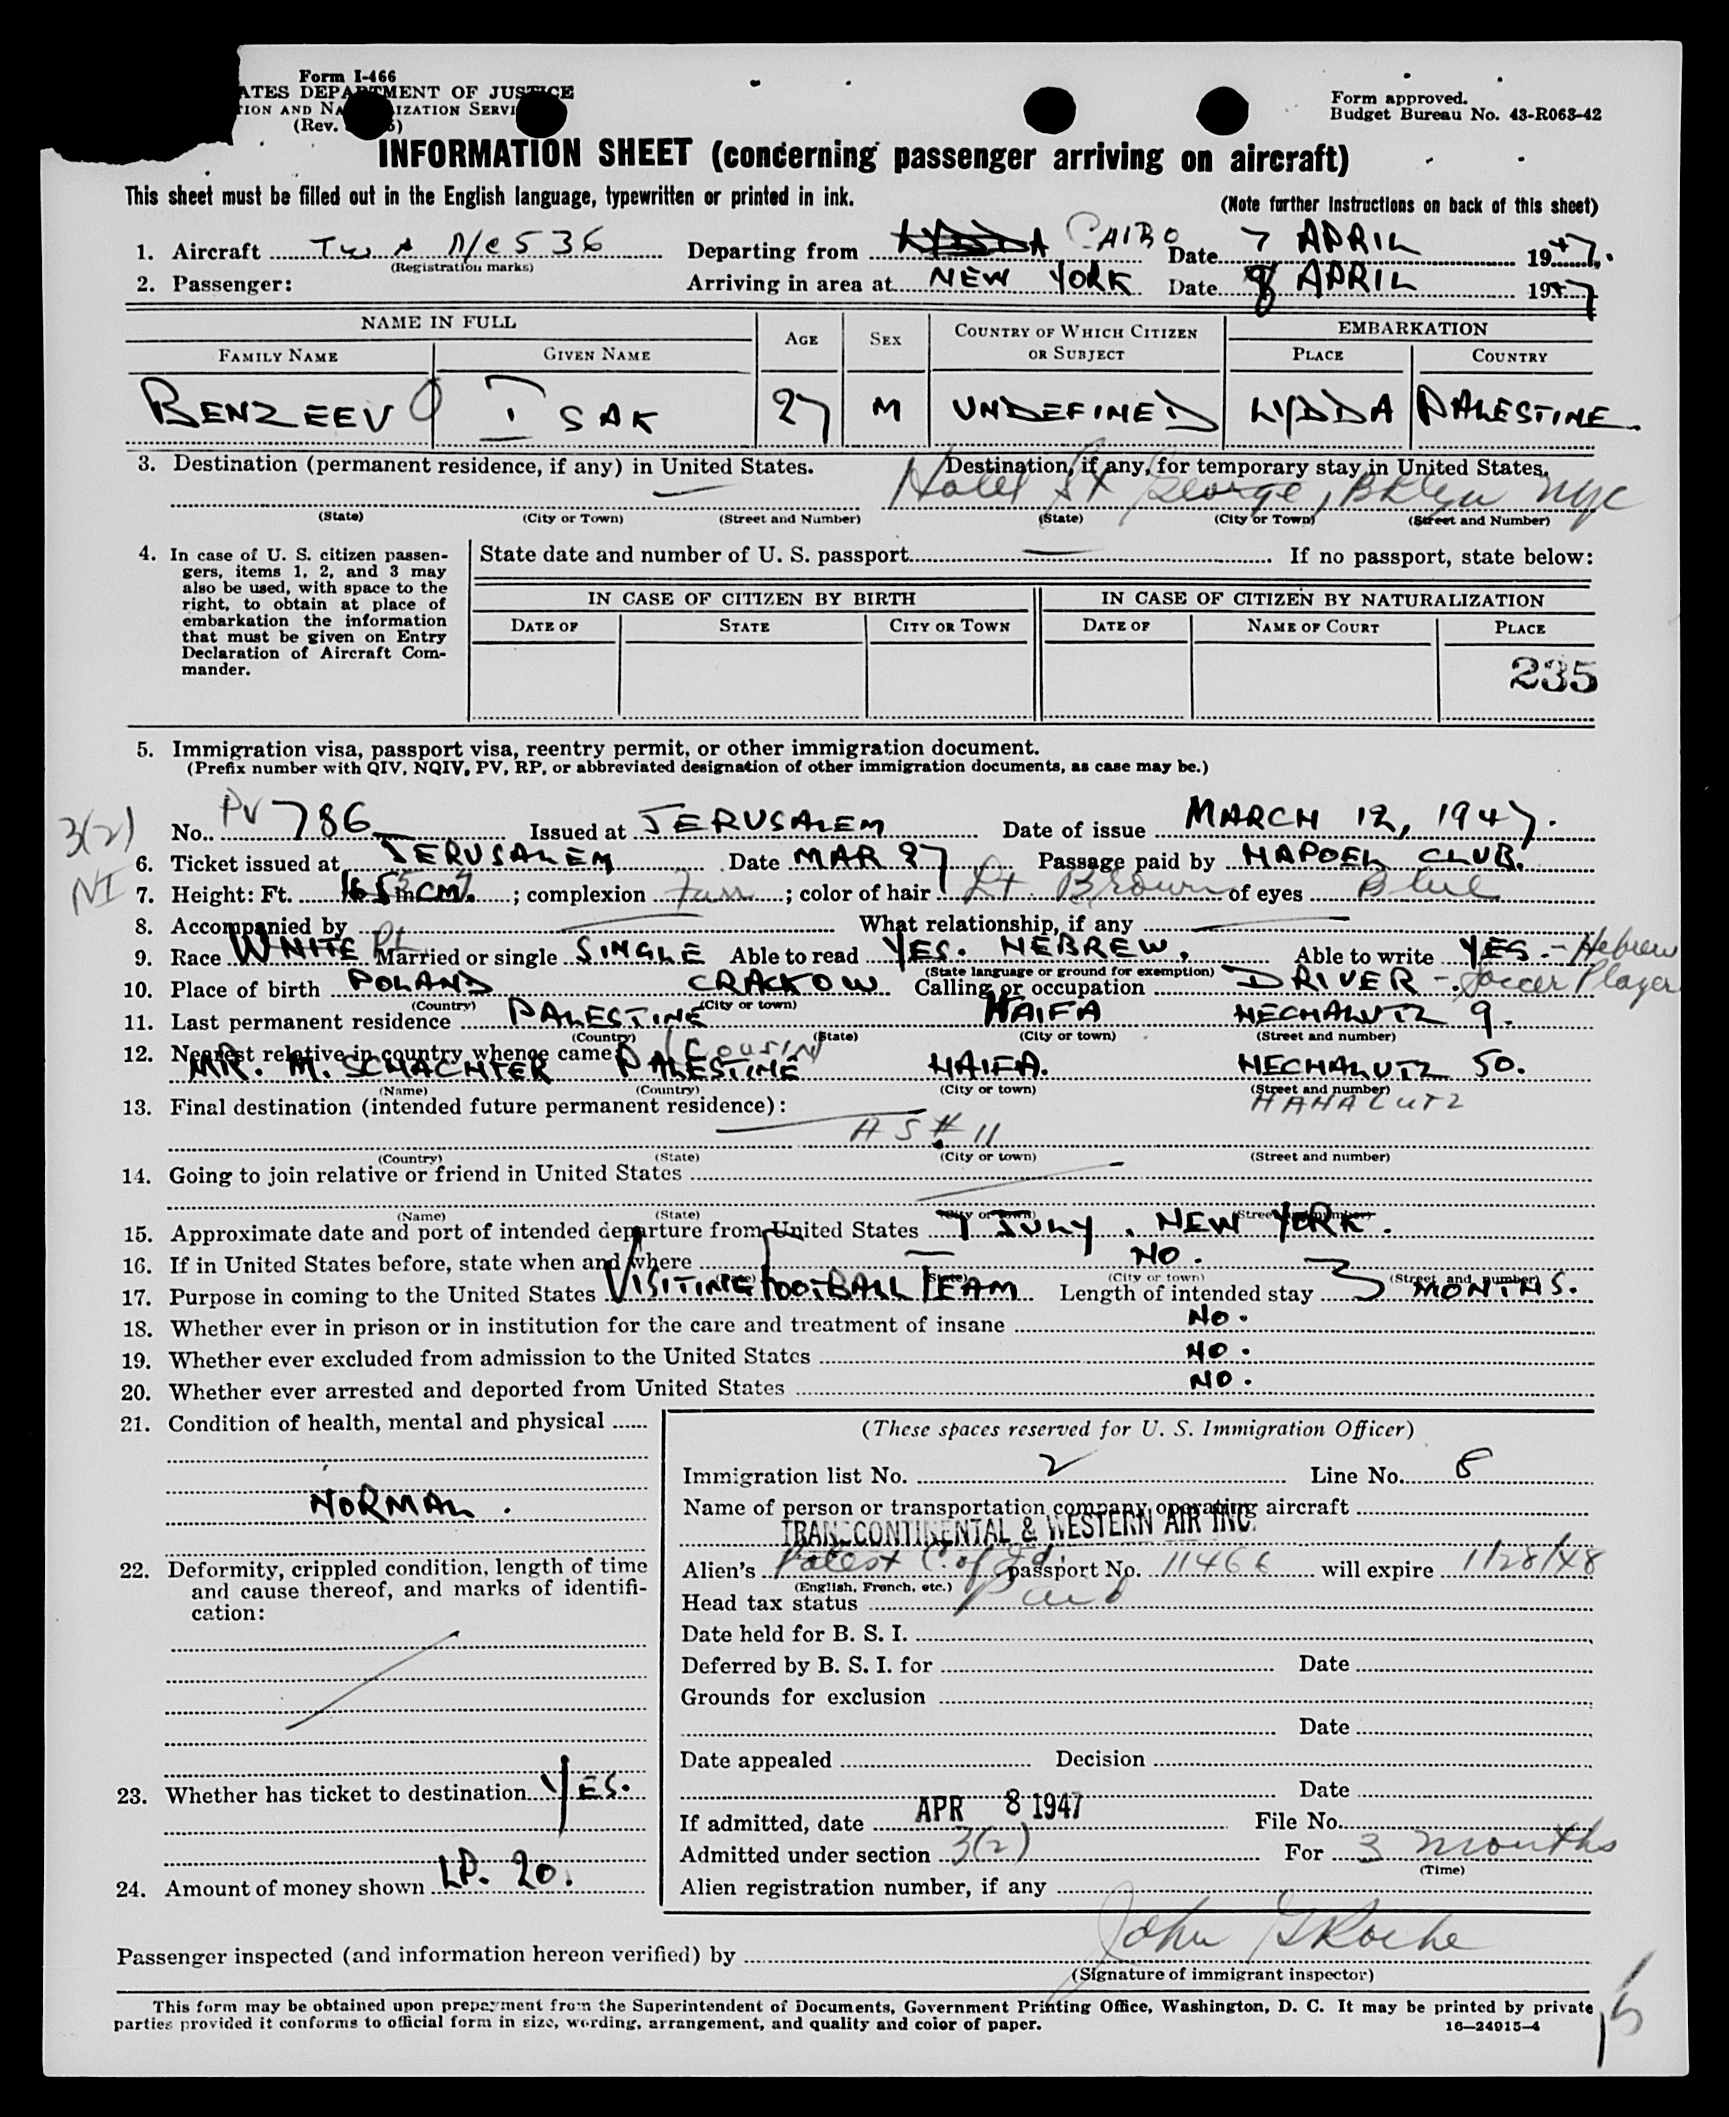 Form I-466
ATES DEPARTMENT OF JUSTICE
TION AND NA IZATION SERVI
(Rev.
Form approved.
Budget Bureau No. 43-R063-42
INFORMATION SHEET (concerning passenger arriving on aircraft)
This sheet must be filled out in the English language, typewritten or printed in ink.
(Note further instructions on back of this sheet)
1. Aircraft TWA N/C 536 Departing from LYDDA CAIRO Date 7 APRIL 1947.
(Registration marks)
2. Passenger: Arriving in area at NEW YORK Date 8 APRIL 1947
NAME IN FULL AGE SEX COUNTRY OF WHICH CITIZEN OR SUBJECT EMBARKATION
FAMILY NAME GIVEN NAME PLACE COUNTRY
BENZEEV ISAK 27 M UNDEFINED LYDDA PALESTINE
3. Destination (permanent residence, if any) in United States. Destination, if any, for temporary stay in United States.
— Hotel St George, Bklyn NYC
(State) (City or Town) (Street and Number) (State) (City or Town) (Street and Number)
4. In case of U. S. citizen passen-
gers, items 1, 2, and 3 may
also be used, with space to the
right, to obtain at place of
embarkation the information
that must be given on Entry
Declaration of Aircraft Com-
mander.
State date and number of U. S. passport — If no passport, state below:
IN CASE OF CITIZEN BY BIRTH IN CASE OF CITIZEN BY NATURALIZATION
DATE OF STATE CITY OR TOWN DATE OF NAME OF COURT PLACE
235
5. Immigration visa, passport visa, reentry permit, or other immigration document.
(Prefix number with QIV, NQIV, PV, RP, or abbreviated designation of other immigration documents, as case may be.)
3(2)
NI
No. PV 786 Issued at JERUSALEM Date of issue MARCH 12, 1947.
6. Ticket issued at JERUSALEM Date MAR 27 Passage paid by HAPOEL CLUB.
7. Height: Ft. in. CM; complexion Fair; color of hair Lt. Brown of eyes Blue
8. Accompanied by — What relationship, if any —
9. Race WHITE Married or single SINGLE Able to read YES. HEBREW. Able to write YES - Hebrew
(State language or ground for exemption)
10. Place of birth POLAND CRACKOW Calling or occupation DRIVER - Soccer Player
(Country) (City or town)
11. Last permanent residence PALESTINE HAIFA HECHALUTZ 9.
(Country) (State) (City or town) (Street and number)
12. Nearest relative in country whence came: (COUSIN
MR. M. SCHACHTER PALESTINE HAIFA. HECHALUTZ 50.
(Name) (Country) (City or town) (Street and number)
HAHALUTZ
13. Final destination (intended future permanent residence):
— AS # 11
(Country) (State) (City or town) (Street and number)
14. Going to join relative or friend in United States
(Name) (State) (City or town) (Street and number)
15. Approximate date and port of intended departure from United States 7 JULY. NEW YORK.
16. If in United States before, state when and where — NO.
(Date) (State) (City or town) (Street and number)
17. Purpose in coming to the United States VISITING FOOTBALL TEAM Length of intended stay 3 MONTHS.
18. Whether ever in prison or in institution for the care and treatment of insane NO.
19. Whether ever excluded from admission to the United States NO.
20. Whether ever arrested and deported from United States NO.
21. Condition of health, mental and physical
NORMAL.
22. Deformity, crippled condition, length of time
and cause thereof, and marks of identifi-
cation:
23. Whether has ticket to destination YES.
24. Amount of money shown LP. 20.
(These spaces reserved for U. S. Immigration Officer)
Immigration list No. 2 Line No. 8
Name of person or transportation company operating aircraft
TRANSCONTINENTAL & WESTERN AIR INC.
Alien's Palest C. of Id. passport No. 11466 will expire 1/28/48
(English, French, etc.)
Head tax status Paid
Date held for B. S. I.
Deferred by B. S. I. for Date
Grounds for exclusion
Date
Date appealed Decision
Date
If admitted, date APR 8 1947 File No.
Admitted under section 3(2) For 3 months
(Time)
Alien registration number, if any
Passenger inspected (and information hereon verified) by John G Roche
(Signature of immigrant inspector)
This form may be obtained upon prepayment from the Superintendent of Documents, Government Printing Office, Washington, D. C. It may be printed by private
parties provided it conforms to official form in size, wording, arrangement, and quality and color of paper.
16—24915-4